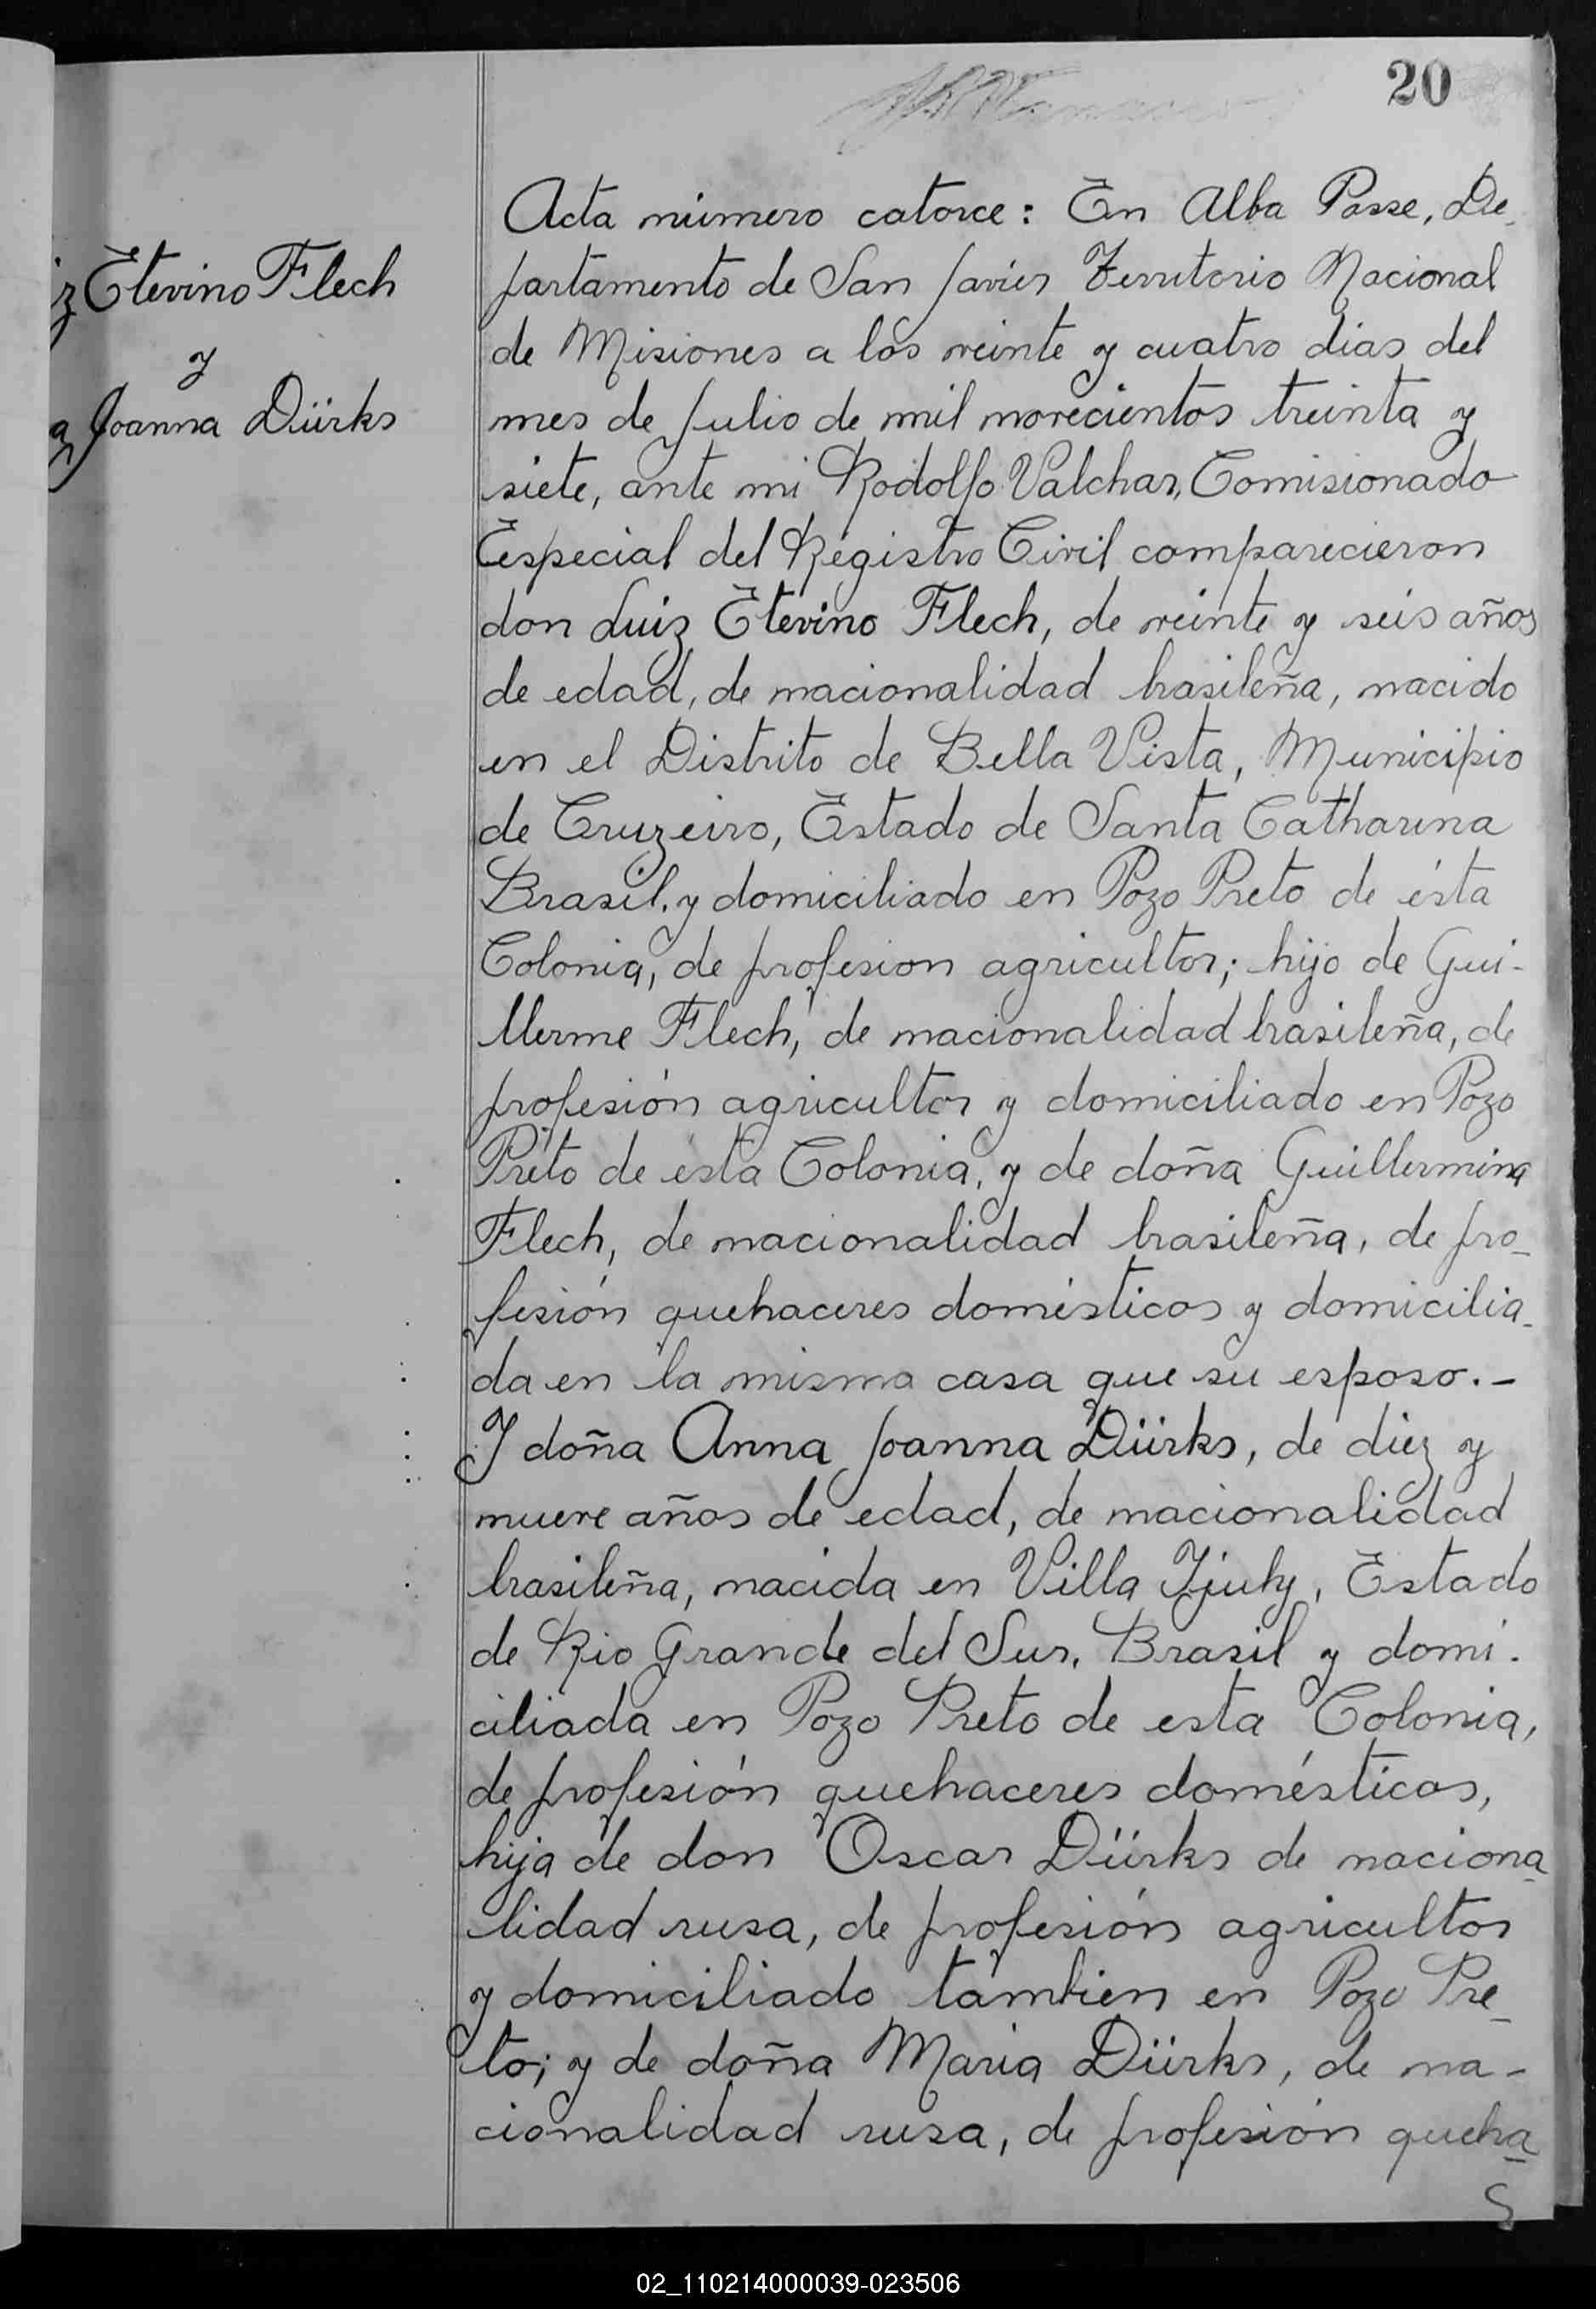 20
Etevino Flech
y
Joanna Dürks
Acta número catorce: En Alba Posse, De-
partamento de San Javier Territorio Nacional
de Misiones a los veinte y cuatro dias del
mes de Julio de mil novecientos treinta y
siete, ante mi Rodolfo Valchar, Comisionado
Especial del Registro Civil comparecieron
don Luiz Etevino Flech, de veinte y seis años
de edad, de nacionalidad brasileña, nacido
en el Distrito de Bella Vista, Municipio
de Cruzeiro, Estado de Santa Catharina
Brasil, y domiciliado en Pozo Preto de ésta
Colonia, de profesion agricultor; hijo de Gui-
llerme Flech, de nacionalidad brasileña, de
profesión agricultor y domiciliado en Pozo
Preto de ésta Colonia, y de doña Guillermina
Flech, de nacionalidad brasileña, de pro-
fesión quehaceres domésticos y domicilia-
da en la misma casa que su esposo.-
Y doña Anna Joanna Dürks, de diez y
nueve años de edad, de nacionalidad
brasileña, nacida en Villa Ijuhy, Estado
de Rio Grande del Sur, Brasil y domi-
ciliada en Pozo Preto de esta Colonia,
de profesión quehaceres domésticos,
hija de don Oscar Dürks de naciona-
lidad rusa, de profesión agricultor
y domiciliado tambien en Pozo Pre-
to; y de doña Maria Dürks, de na-
cionalidad rusa, de profesión queha-
02_110214000039-023506